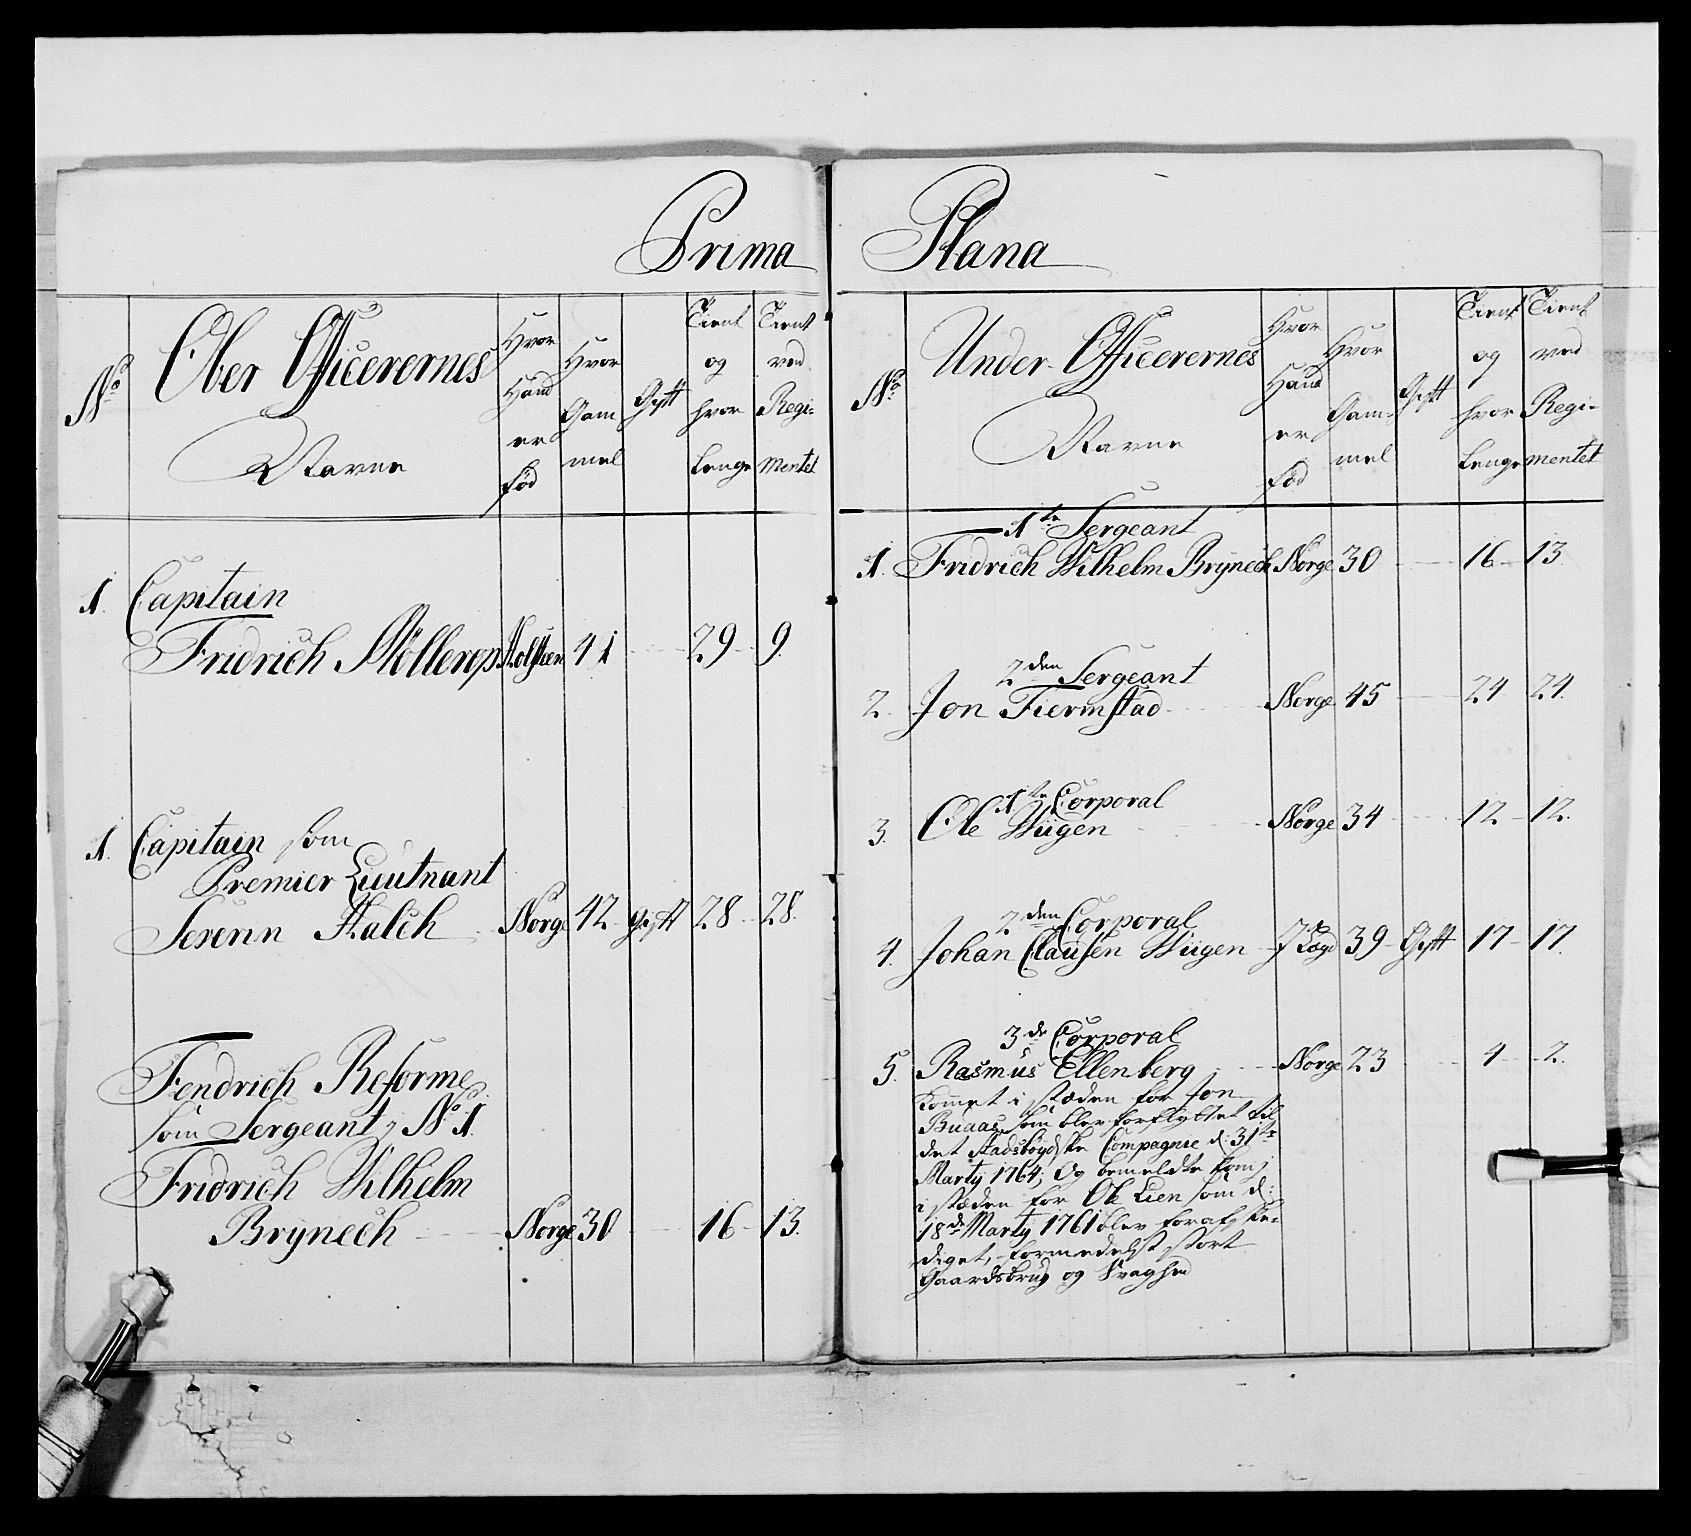 Prima
No
Ober Officerernes
Navne
Hvor
Hand
er
fød
Hvor
Gam
mel
Gift
Tient
og
hvor
lenge
Tient
ved
Regi-
mentet
1. Capitain
Fridrich Möllerop Holsteen 41 29 9.
1. Capitain som
Premier Lieutnant
Serenn Halch Norge 42 gift 28 28.
Fendrich Reforme
som Sergeant, No 1.
Fridrich Wilhelm
Brynech Norge 30 16 13.
Plana
No
Under Officerernes
Navne
Hvor
Hand
er
fød
Hvor
Gam-
mel
Gift
Tient
og
hvor
lenge
Tient
ved
Regi-
mentet
1te Sergeant
1. Fridrich Wilhelm Brynech Norge 30 16 13.
2den Sergeant
2. Jon Fiermstad Norge 45 24 24.
1te Corporal
3. Ole Wiigen Norge 34 12 12.
2den Corporal
4. Johan Clausen Wiigen 39 Gift 17 17.
3de Corporal
5. Rasmus Ellenberg Norge 23 4 2.
kommet i stæden for Jon
Buaas, som blev forflyttet til
det Stadsbøydske Compagnie d: 31te
Marty 1764, Og bemeldte kom
i stæden for Ole Lien som d:
18de Marty 1761 blev forafske-
diget, formedelst stort
Gaardsbrug og Svaghed